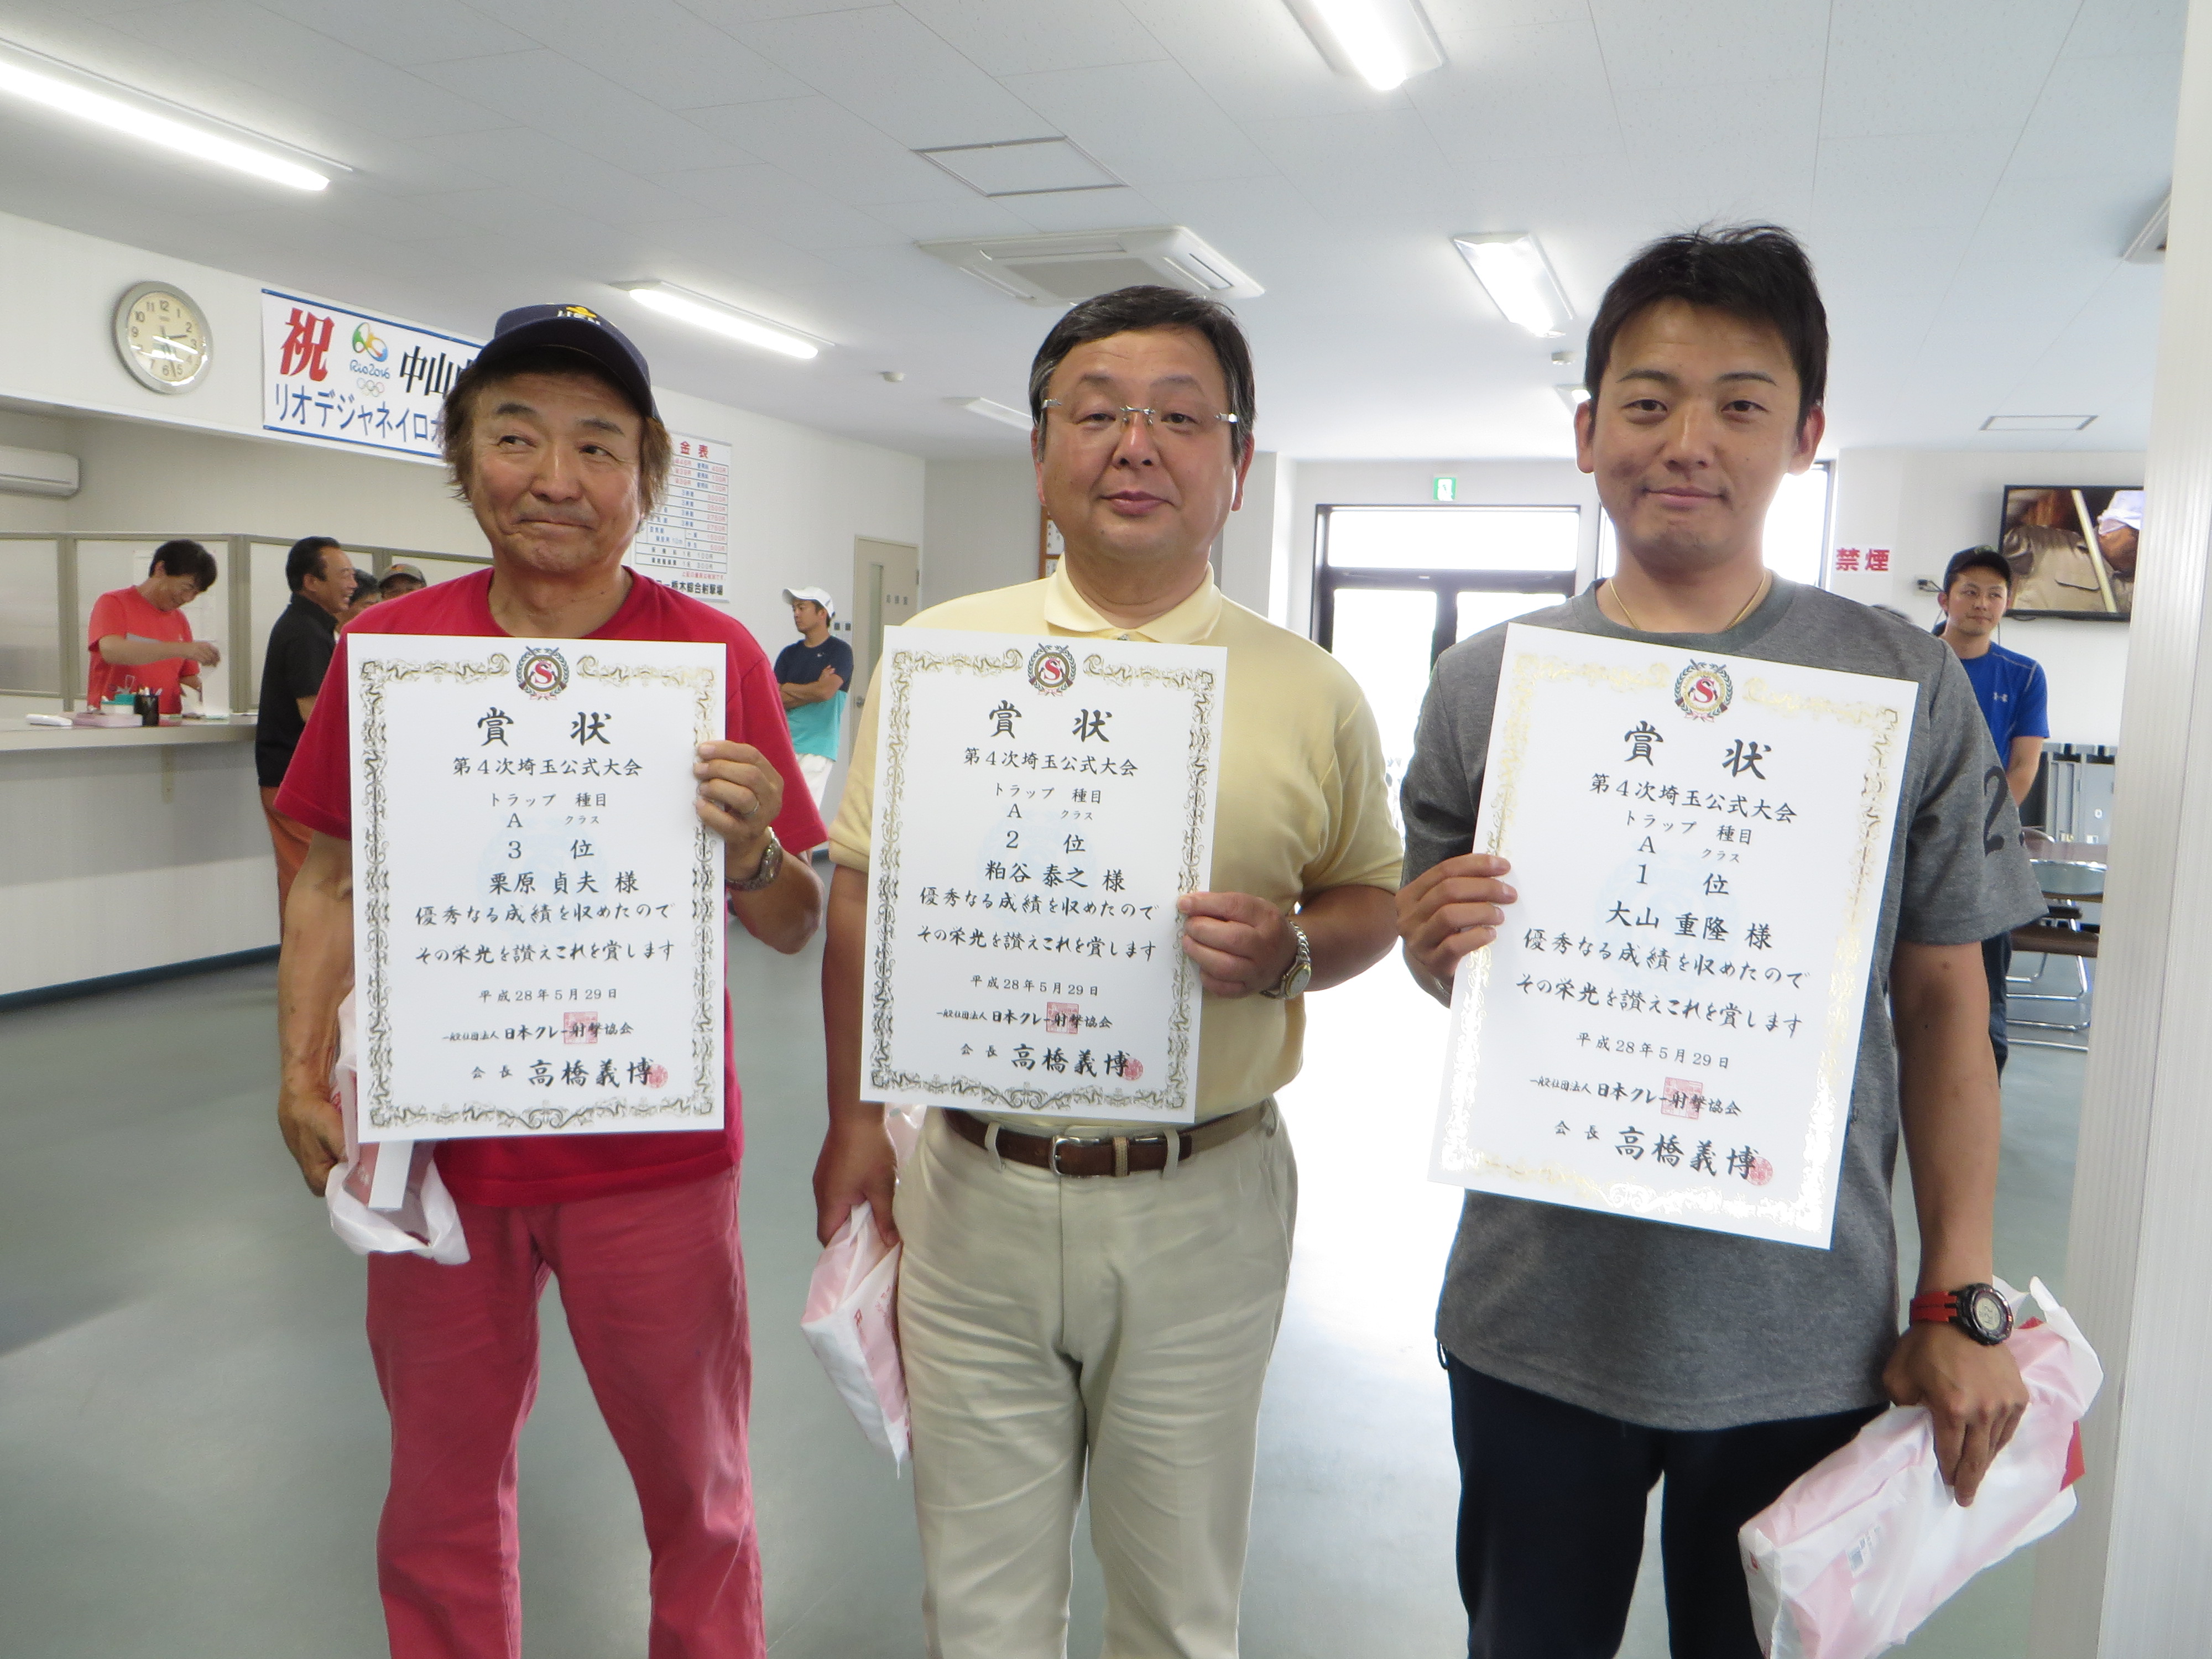 祝
Rio2016
中山
リオデジャネイロオ
金表
栃木総合射撃場
禁煙
2
S
賞 状
第4次埼玉公式大会
トラップ 種目
A クラス
3 位
栗原 貞夫 様
優秀なる成績を収めたので
その栄光を讃えこれを賞します
平成28年5月29日
一般社団法人 日本クレー射撃協会
会長 高橋義博
S
賞 状
第4次埼玉公式大会
トラップ 種目
A クラス
2 位
粕谷 泰之 様
優秀なる成績を収めたので
その栄光を讃えこれを賞します
平成28年5月29日
一般社団法人 日本クレー射撃協会
会長 高橋義博
S
賞 状
第4次埼玉公式大会
トラップ 種目
A クラス
1 位
大山 重隆 様
優秀なる成績を収めたので
その栄光を讃えこれを賞します
平成28年5月29日
一般社団法人 日本クレー射撃協会
会長 高橋義博